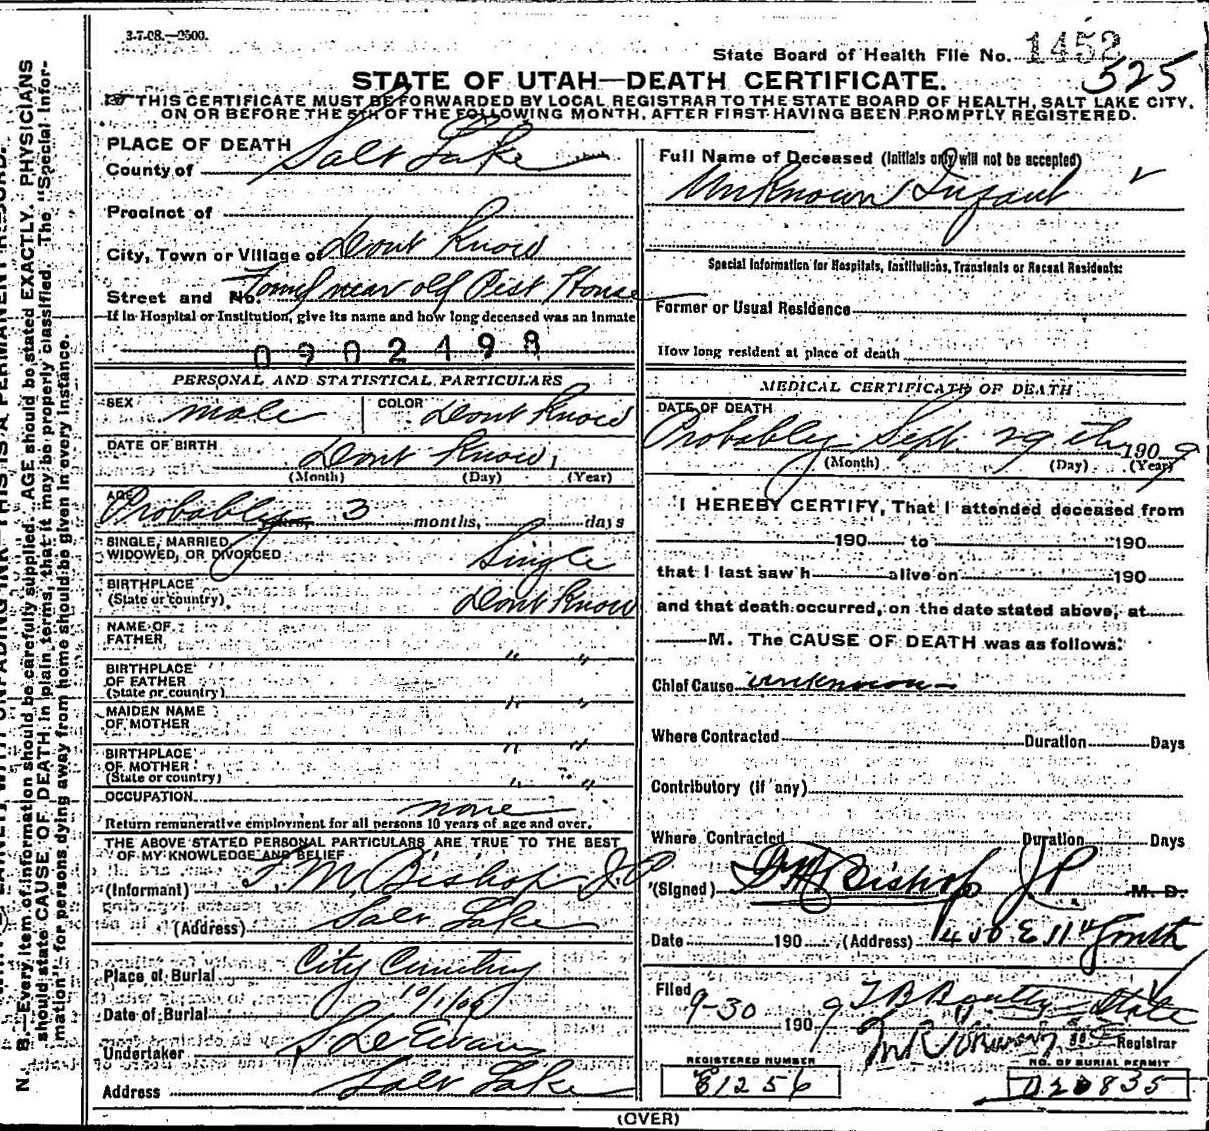 3-7-08.—2500.
State Board of Health File No. 1452
525
STATE OF UTAH—DEATH CERTIFICATE.
THIS CERTIFICATE MUST BE FORWARDED BY LOCAL REGISTRAR TO THE STATE BOARD OF HEALTH, SALT LAKE CITY,
ON OR BEFORE THE 5TH OF THE FOLLOWING MONTH, AFTER FIRST HAVING BEEN PROMPTLY REGISTERED.
PLACE OF DEATH
County of Salt Lake
Precinct of
City, Town or Village of Dont Know
Street and No. Found near old Pest House
If in Hospital or Institution, give its name and how long deceased was an inmate
0902498
PERSONAL AND STATISTICAL PARTICULARS
SEX male COLOR Dont Know
DATE OF BIRTH Dont Know
(Month) (Day) (Year)
AGE Probably years, 3 months, days
SINGLE, MARRIED,
WIDOWED, OR DIVORCED Single
BIRTHPLACE
(State or country) Dont Know
NAME OF
FATHER " "
BIRTHPLACE
OF FATHER
(State or country) " "
MAIDEN NAME
OF MOTHER " "
BIRTHPLACE
OF MOTHER
(State or country) " "
OCCUPATION none
Return remunerative employment for all persons 10 years of age and over.
THE ABOVE STATED PERSONAL PARTICULARS ARE TRUE TO THE BEST
OF MY KNOWLEDGE AND BELIEF
(Informant) F. M. Bishop J.P.
(Address) Salt Lake
Place of Burial City Cemetry
Date of Burial 10/1/09
Undertaker S D Evans
Address Salt Lake
Full Name of Deceased (Initials only will not be accepted)
Unknown Infant
Special Information for Hospitals, Institutions, Transients or Recent Residents:
Former or Usual Residence
How long resident at place of death
MEDICAL CERTIFICATE OF DEATH
DATE OF DEATH
Probably Sept. 29th 1909
(Month) (Day) (Year)
I HEREBY CERTIFY, That I attended deceased from
190 to 190
that I last saw h alive on 190
and that death occurred, on the date stated above, at
M. The CAUSE OF DEATH was as follows:
Chief Cause unknown
Where Contracted Duration Days
Contributory (If any)
Where Contracted Duration Days
(Signed) F M Bishop J.P. M. D.
Date 190 (Address) E 11th South
Filed
9-30 1909 T B Beatty State
Registrar
REGISTERED NUMBER
E1256
NO. OF BURIAL PERMIT
D20835
(OVER)
N. B.—Every item of information should be carefully supplied. AGE should be stated EXACTLY. PHYSICIANS
should state CAUSE OF DEATH in plain terms, that it may be properly classified. The "Special Infor-
mation" for persons dying away from home should be given in every instance.